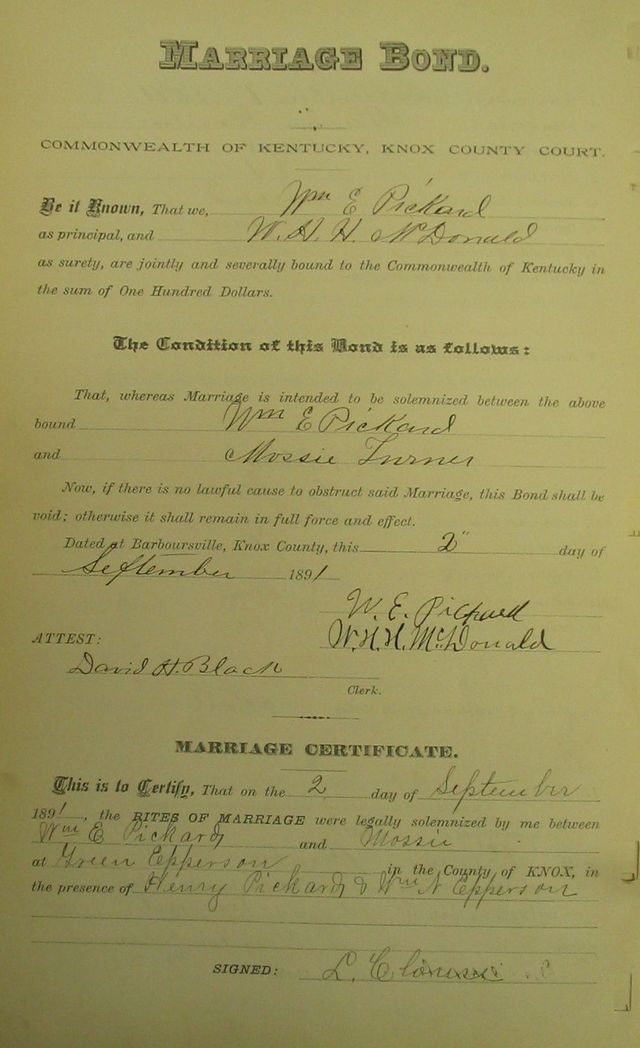 MARRIAGE BOND.
COMMONWEALTH OF KENTUCKY, KNOX COUNTY COURT.
Be it Known, That we, Wm E Pickard
as principal, and W. H. H. McDonald
as surety, are jointly and severally bound to the Commonwealth of Kentucky in
the sum of One Hundred Dollars.
The Condition of this Bond is as follows:
That, whereas Marriage is intended to be solemnized between the above
bound Wm E Pickard
and Mossie Turner
Now, if there is no lawful cause to obstruct said Marriage, this Bond shall be
void; otherwise it shall remain in full force and effect.
Dated at Barboursville, Knox County, this 2" day of
September 1891
W. E. Pickard
ATTEST: W. H. H. McDonald
David H. Black
Clerk.
MARRIAGE CERTIFICATE.
This is to Certify, That on the 2 day of September
1891, the RITES OF MARRIAGE were legally solemnized by me between
Wm E Pickard and Mossie
at Green Epperson in the County of KNOX, in
the presence of Henry Pickard & Wm N Epperson
SIGNED: L.